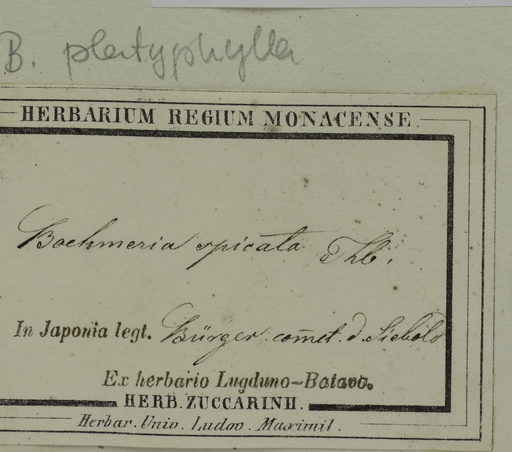 B. platyphylla
HERBARIUM REGIUM MONACENSE.
Boehmeria spicata Thb.
In Japonia legt. Bürger. com̄. d. Siebold
Ex herbario Lugduno-Batavo.
HERB. ZUCCARINII.
Herbar. Univ. Ludov. Maximil.